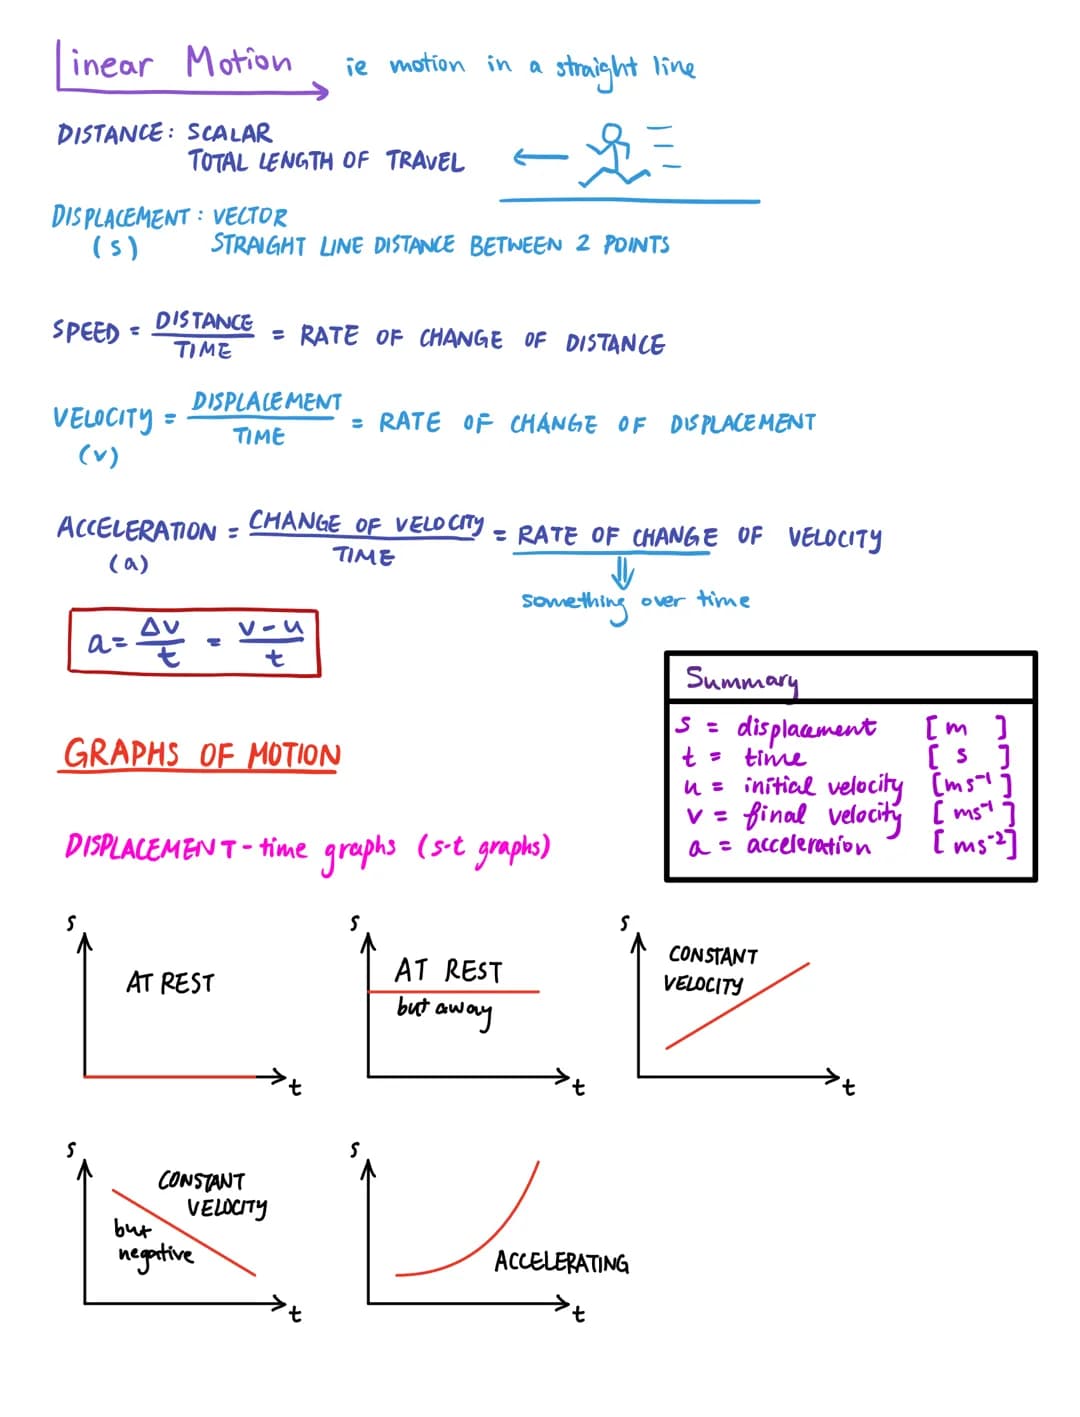 Linear Motion ie motion in a straight line
DISTANCE: SCALAR
TOTAL LENGTH OF TRAVEL
DISPLACEMENT: VECTOR
(s) STRAIGHT LINE DISTANCE BETWEEN 2 POINTS
SPEED = DISTANCE / TIME = RATE OF CHANGE OF DISTANCE
VELOCITY = DISPLACEMENT / TIME = RATE OF CHANGE OF DISPLACEMENT
(v)
ACCELERATION = CHANGE OF VELOCITY / TIME = RATE OF CHANGE OF VELOCITY
(a)
something over time
a = Δv / t = v - u / t
Summary
s = displacement [m]
t = time [s]
u = initial velocity [ms⁻¹]
v = final velocity [ms⁻¹]
a = acceleration [ms⁻²]
GRAPHS OF MOTION
DISPLACEMENT - time graphs (s-t graphs)
s
AT REST
t
s
AT REST
but away
t
s
CONSTANT
VELOCITY
t
s
CONSTANT
VELOCITY
but
negative
t
s
ACCELERATING
t